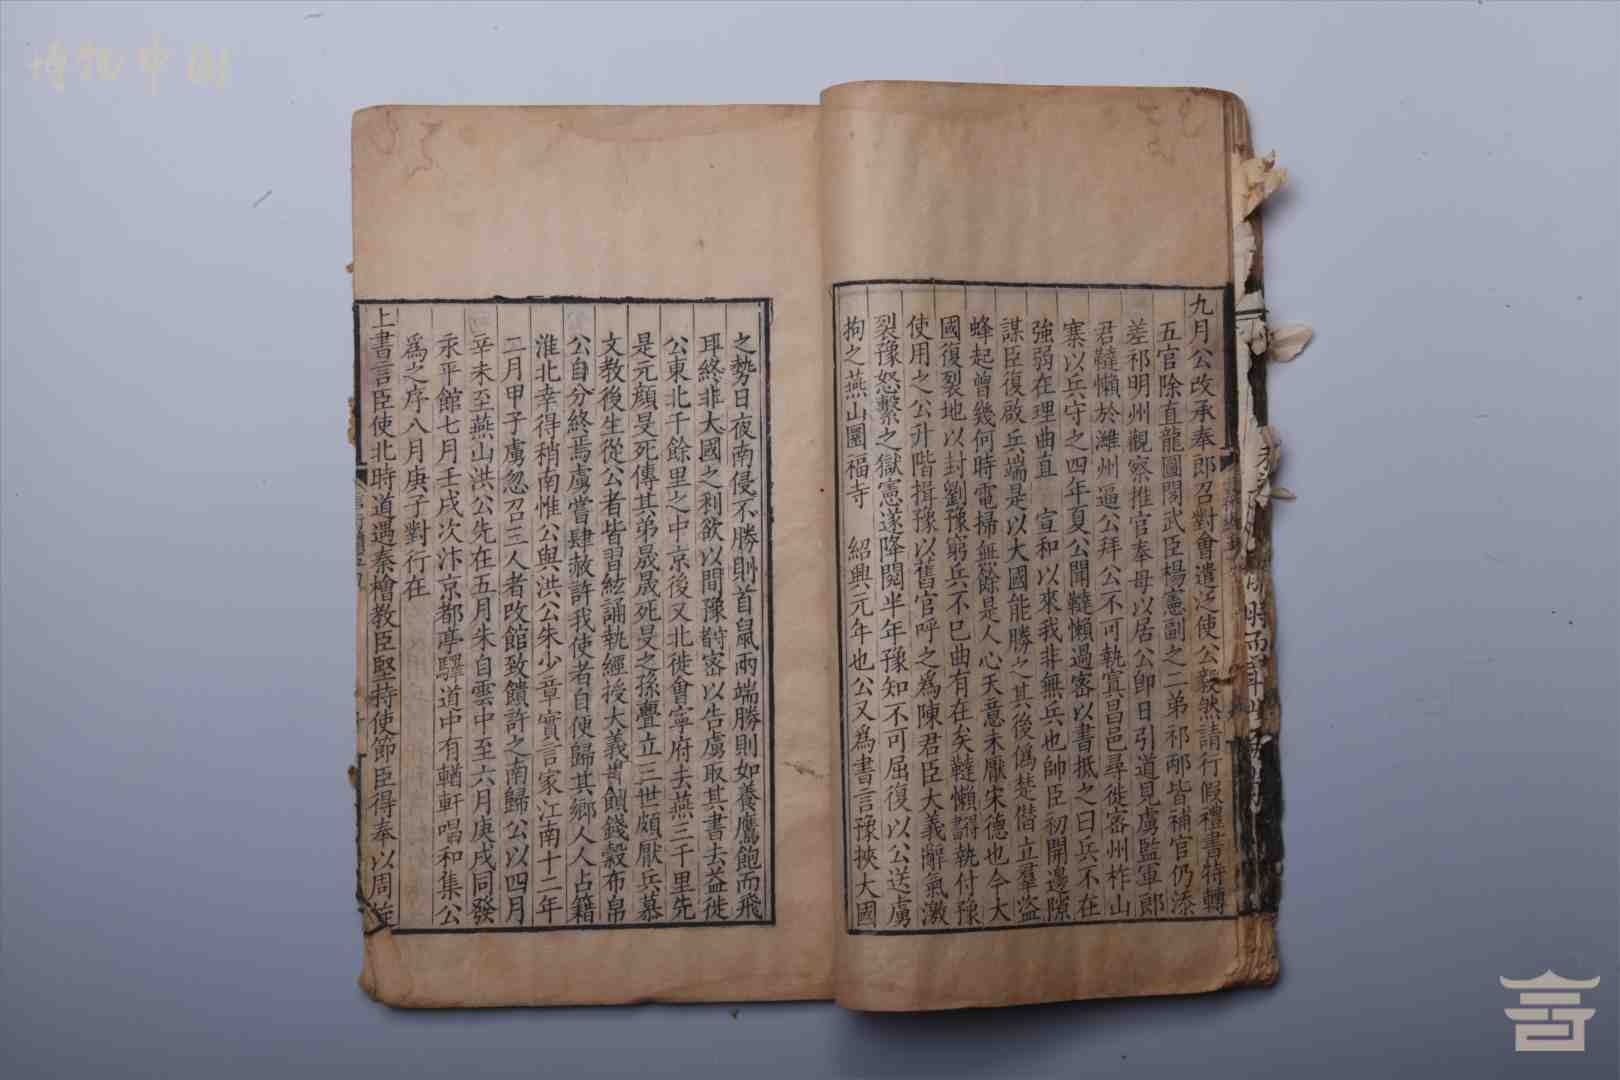 博物中國
九月公改承奉郎召對會遣泛使公毅然請行假禮書特轉
五官除直龍圖閣武臣楊憲副之二弟祁邴皆補官仍添
差祁明州觀察推官奉母以居公卽日引道見虜監軍郎
君韃懶於濰州逼公拜公不可執寘昌邑尋徙密州柞山
寨以兵守之四年夏公聞韃懶過密以書抵之曰兵不在
強弱在理曲直 宣和以來我非無兵也帥臣初開邊隙
謀臣復啟兵端是以大國能勝之其後僞楚僭立羣盜
蜂起曾幾何時電掃無餘是人心天意未厭宋德也今大
國復裂地以封劉豫窮兵不已曲有在矣韃懶得書執付豫
使用之公升階揖豫以舊官呼之爲陳君臣大義辭氣激
裂豫怒繫之獄憲遂降閱半年豫知不可屈復以公送虜
拘之燕山圓福寺 紹興元年也公又爲書言豫挾大國
之勢日夜南侵不勝則首鼠兩端勝則如養鷹飽而飛
耳終非大國之利欲以間豫守密以告虜取其書去益徙
公東北千餘里之中京後又北徙會寧府去燕三千里先
是元顏旻死傳其弟晟晟死旻之孫亶立三世頗厭兵慕
文教後生從公者皆習絃誦執經授大義時饋錢穀布帛
公自分終焉虜嘗肆赦許我使者自便歸其鄉人人占籍
淮北幸得稍南惟公與洪公朱少章實言家江南十二年
二月甲子虜忽召三人者改館致饋許之南歸公以四月
辛未至燕山洪公先在五月朱自雲中至六月庚戌同發
永平館七月壬戌次汴京都亭驛道中有輶軒唱和集公
爲之序八月庚子對行在
上書言臣使北時道遇秦檜教臣堅持使節臣得奉以周旋